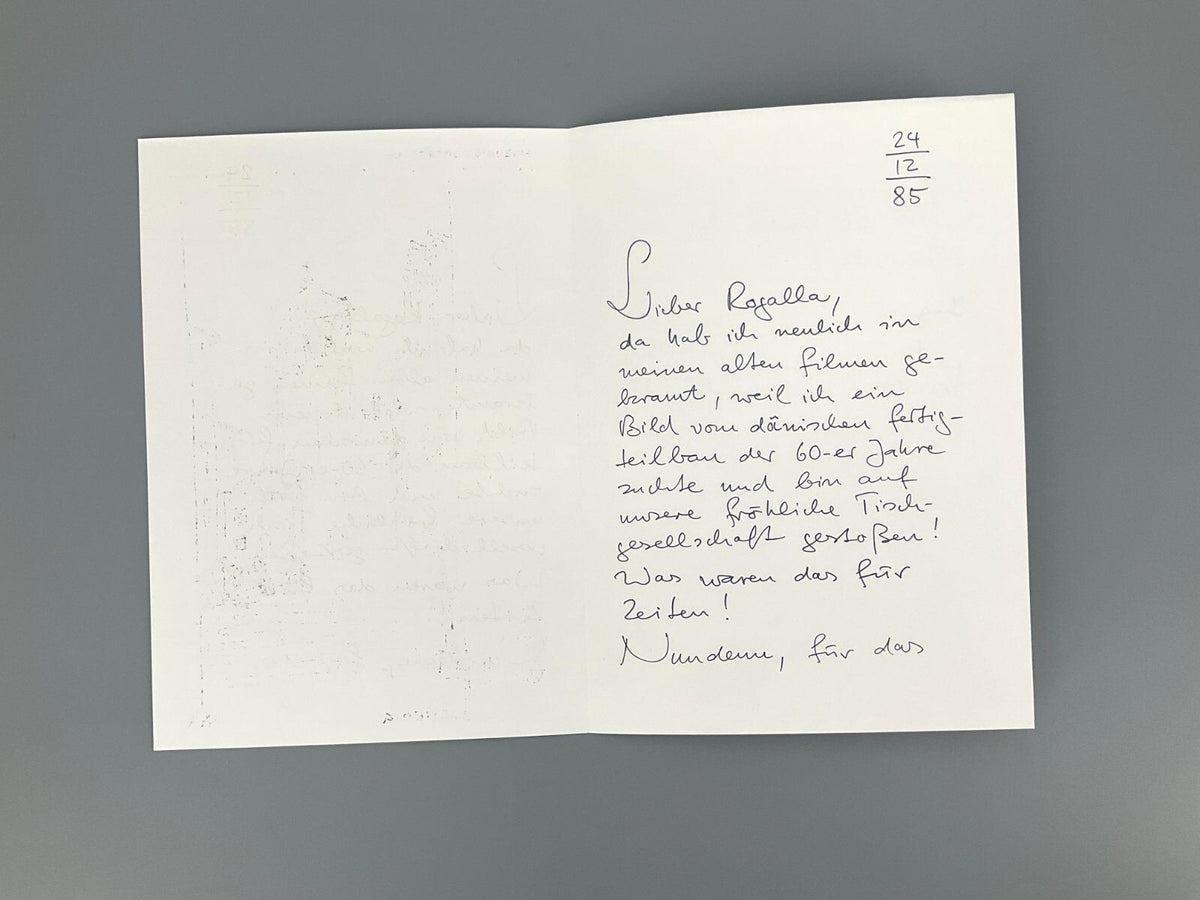 24
12
85
Lieber Rogalla,
da hab ich neulich in
meinen alten Filmen ge-
kramt, weil ich ein
Bild vom dänischen Fertig-
teilbau der 60-er Jahre
suchte und bin auf
unsere fröhliche Tisch-
gesellschaft gestoßen!
Was waren das für
Zeiten!
Nundenn, für das